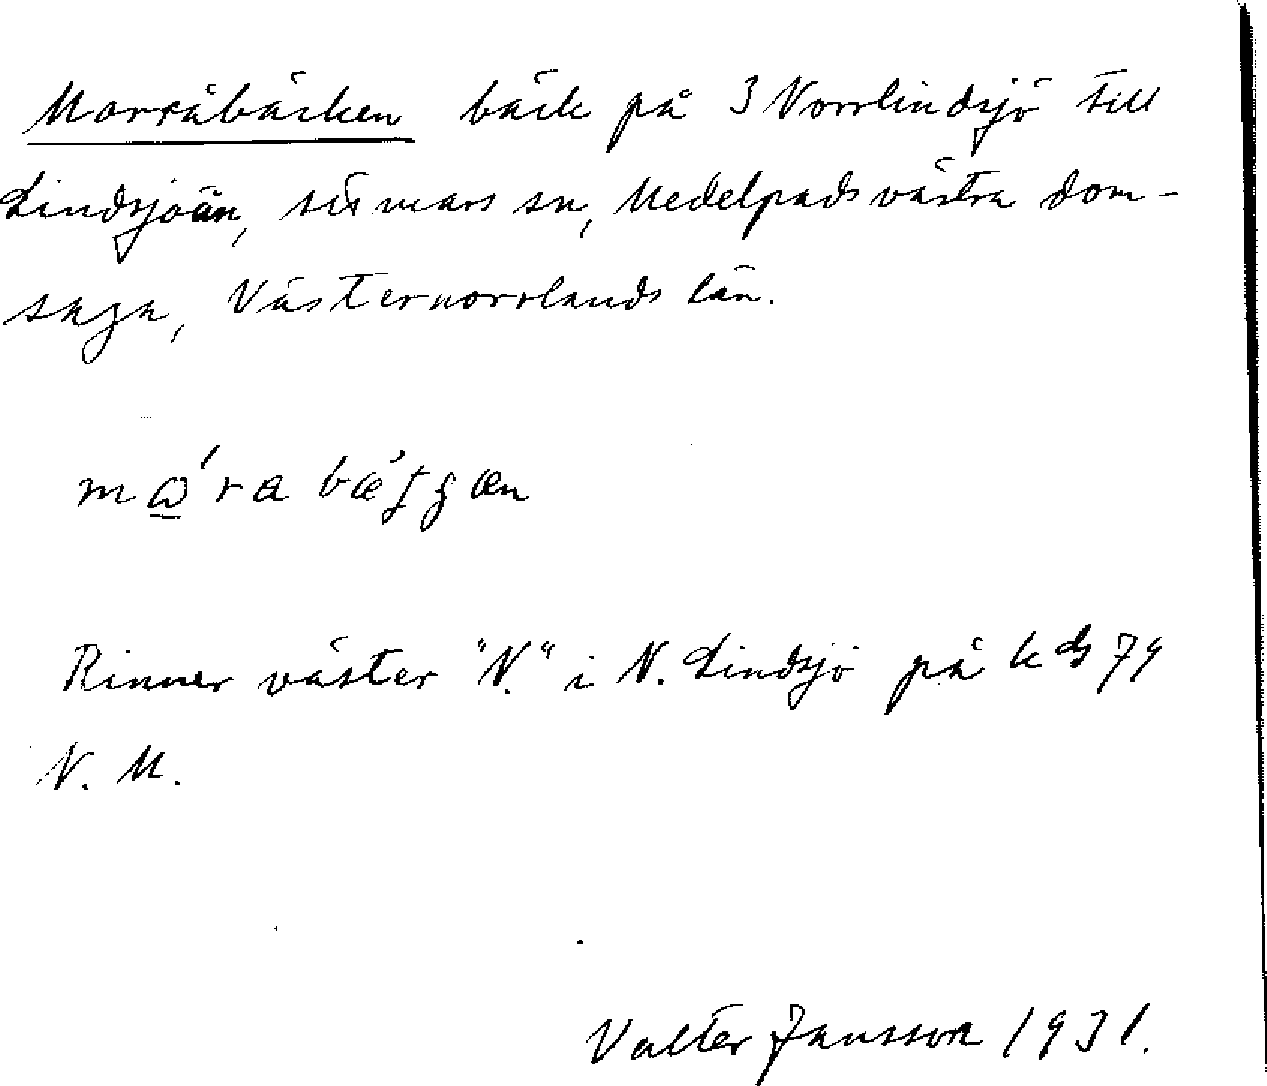 Morråbäcken bäck på 3 Norrlindsjö till
Lindsjöån, Stömars sn, Medelpads västra dom-
saga, Västernorrlands län.
Rinner väster "N." i N. Lindsjö på kbl 79
N. M.
Valter Jansson 1931.